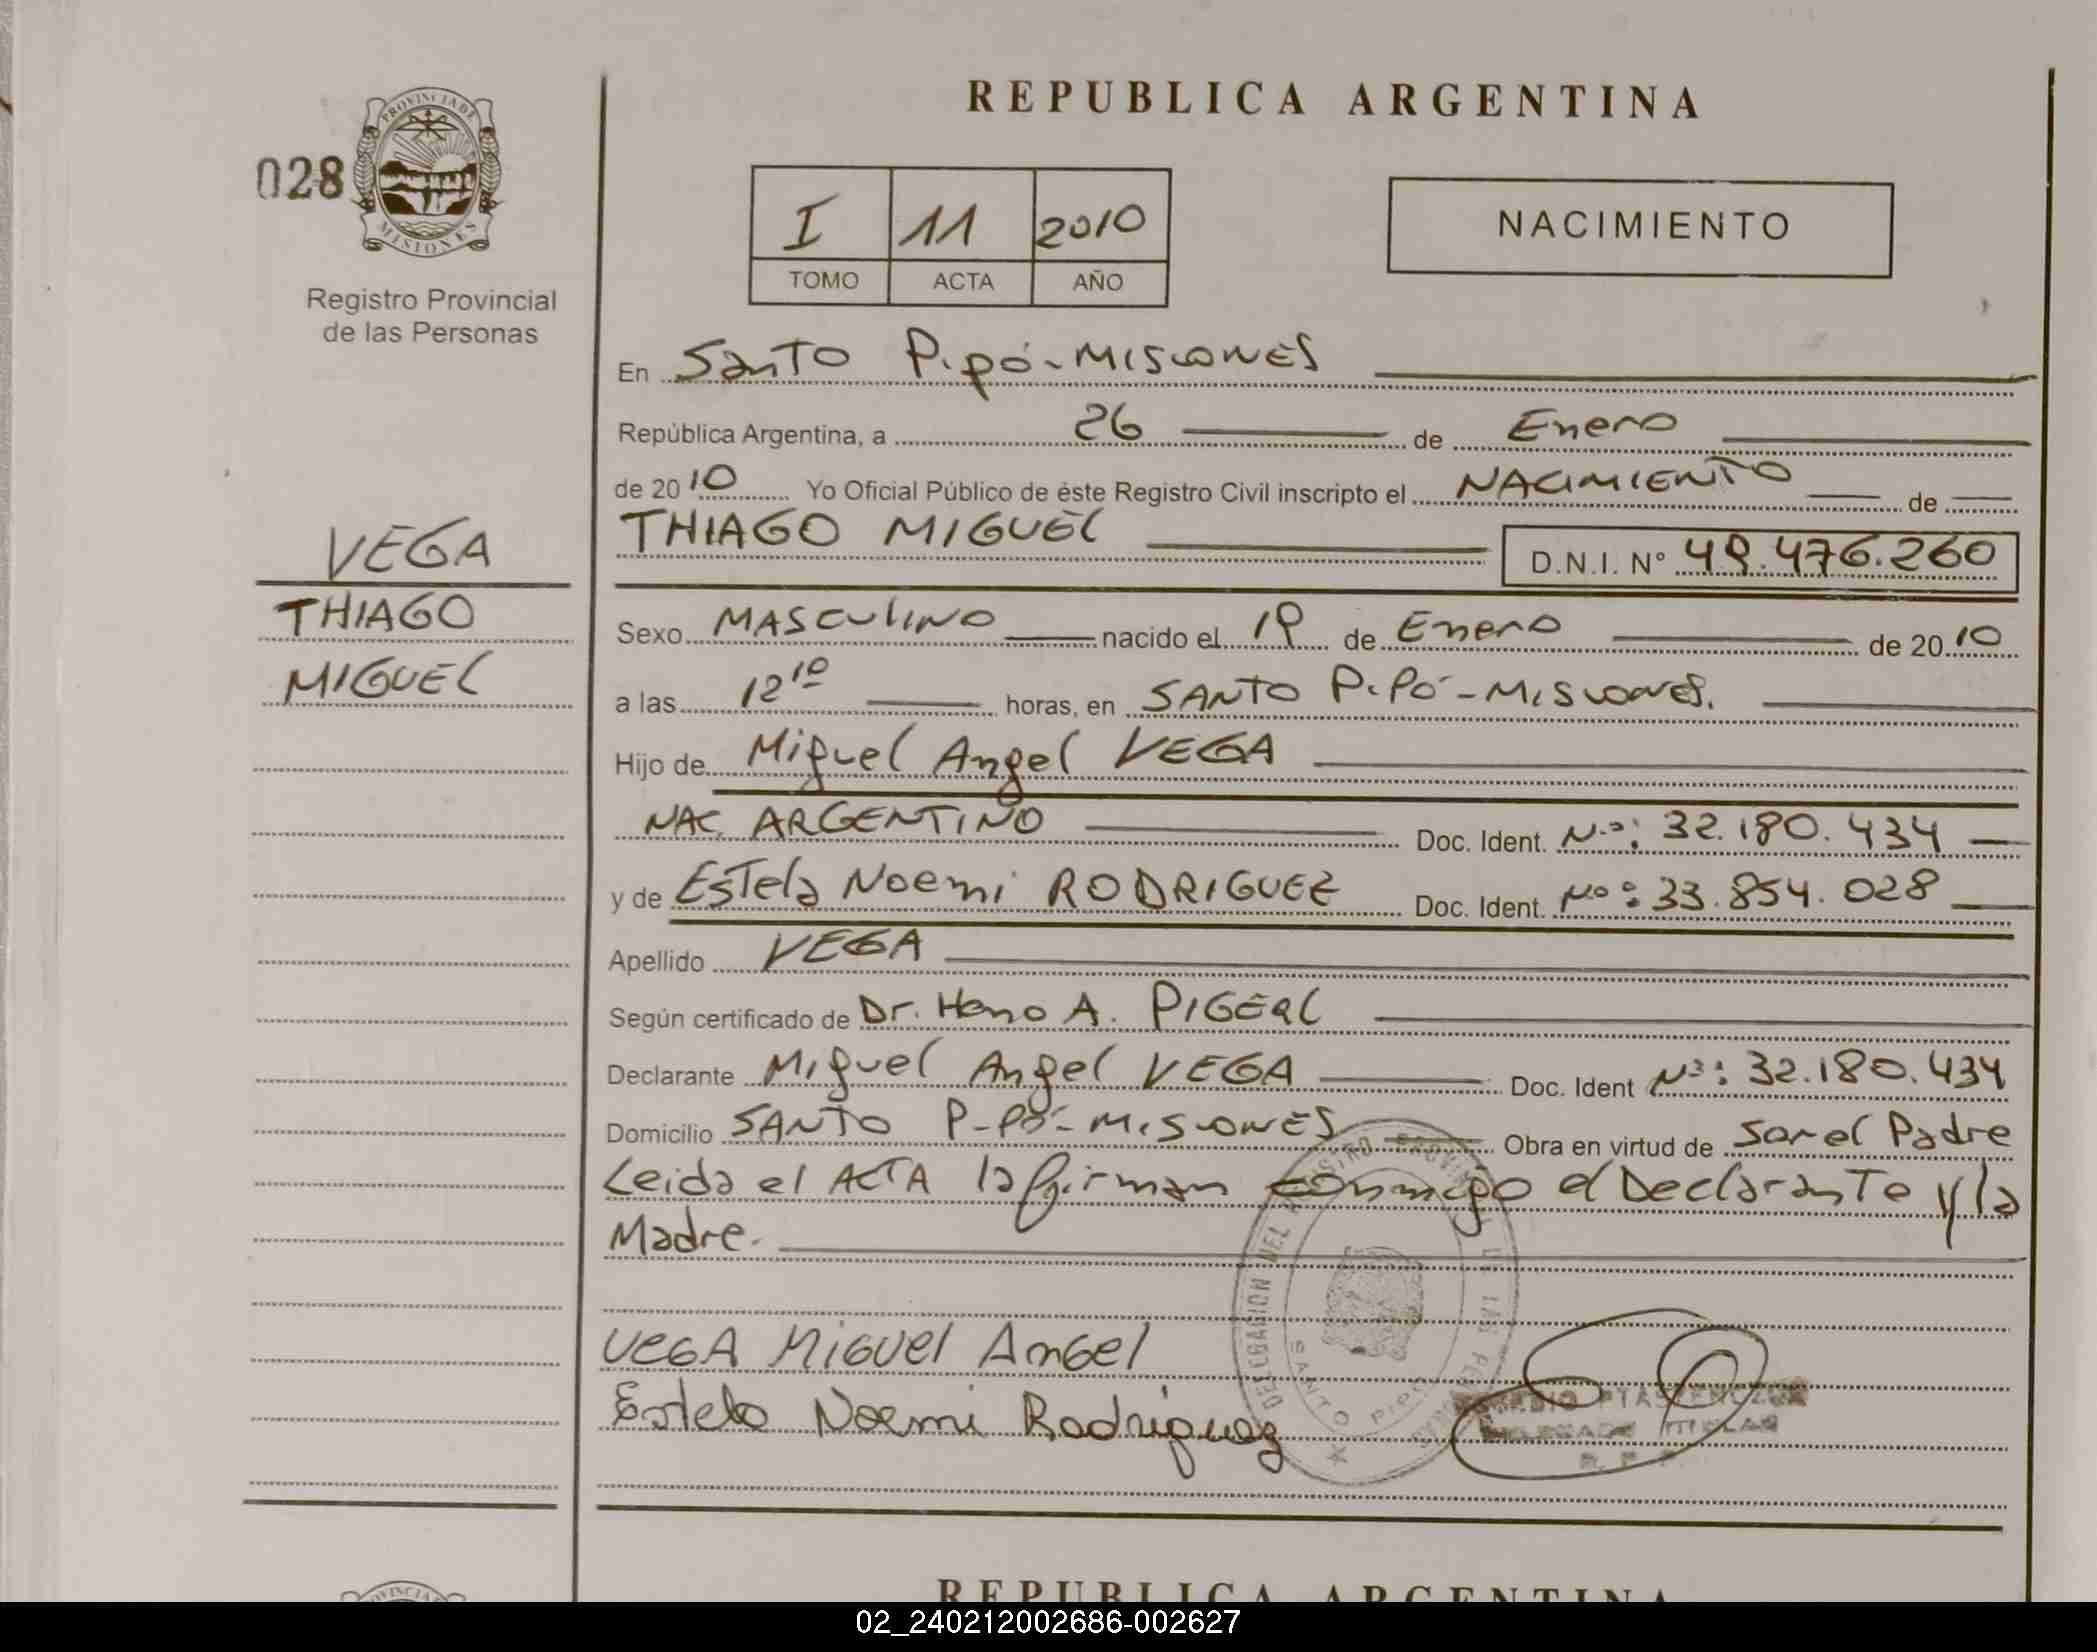 REPUBLICA ARGENTINA
PROVINCIA DE
MISIONES
028
Registro Provincial
de las Personas
I 11 2010
TOMO ACTA AÑO
NACIMIENTO
En Santo Pipó-Misiones
República Argentina, a 26 de Enero
de 2010 Yo Oficial Público de éste Registro Civil inscripto el NACIMIENTO de
VEGA
THIAGO
MIGUEL
THIAGO MIGUEL D.N.I. Nº 49.476.260
Sexo MASCULINO nacido el 19 de Enero de 2010
a las 12 10 horas, en SANTO PiPó-Misiones.
Hijo de Miguel Angel VEGA
NAC. ARGENTINO Doc. Ident. Nº: 32.180.434
y de Estela Noemi RODRIGUEZ Doc. Ident. Nº: 33.854.028
Apellido VEGA
Según certificado de Dr. A.
Declarante Miguel Angel VEGA Doc. Ident Nº: 32.180.434
Domicilio SANTO PiPó-Misiones Obra en virtud de Ser el Padre
Leida el ACTA la firman conmigo el Declarante y la
Madre.
VEGA MIGUEL ANGEL
Estela Noemi Rodriguez
DELEGACION DEL REGISTRO PROVINCIAL DE LAS PERSONAS
SANTO PIPO
TITULAR
REPUBLICA ARGENTINA
02_240212002686-002627